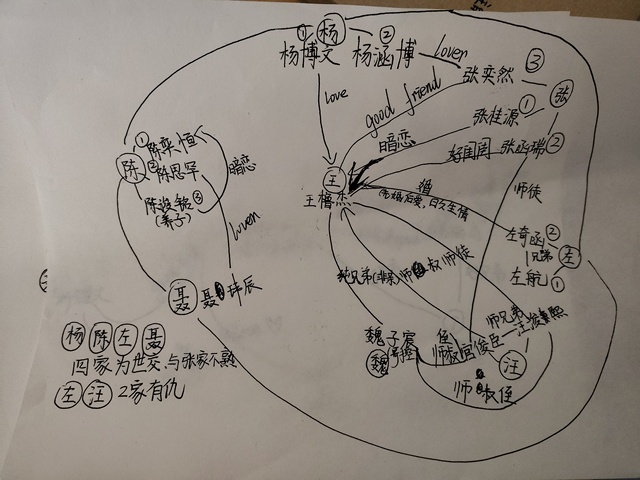 ① 杨 ②
杨博文 杨涵博 lover 张奕然 ③
love
good friend
张桂源 ① 张
暗恋
好闺闺 张函瑞 ②
① 陈奕恒
陈 ② 陈思罕
陈浚铭 ③
(养子)
暗恋
lover
王
王橹杰
先婚后爱,日久生情
师徒
左奇函 ②
兄弟
左航 ①
左
聂 聂玮辰
纯兄弟 师叔 师徒
魏子宸
魏
师兄弟
官俊臣
汪浚熙
汪
师叔侄
杨 陈 左 聂
四家为世交,与张家不熟
左 汪 2家有仇